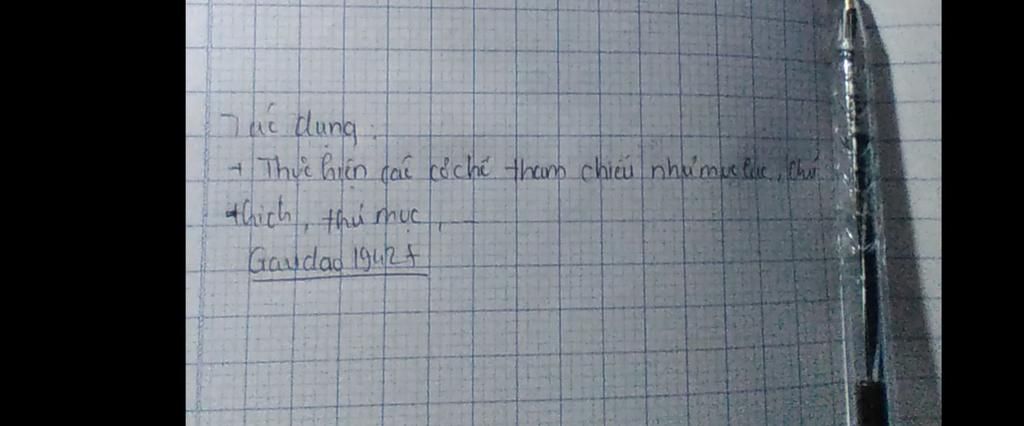 Tác dụng:
+ Thực hiện các cơ chế tham chiếu như mục lục, chú
thích, thư mục, ...
Gaydao 1942f